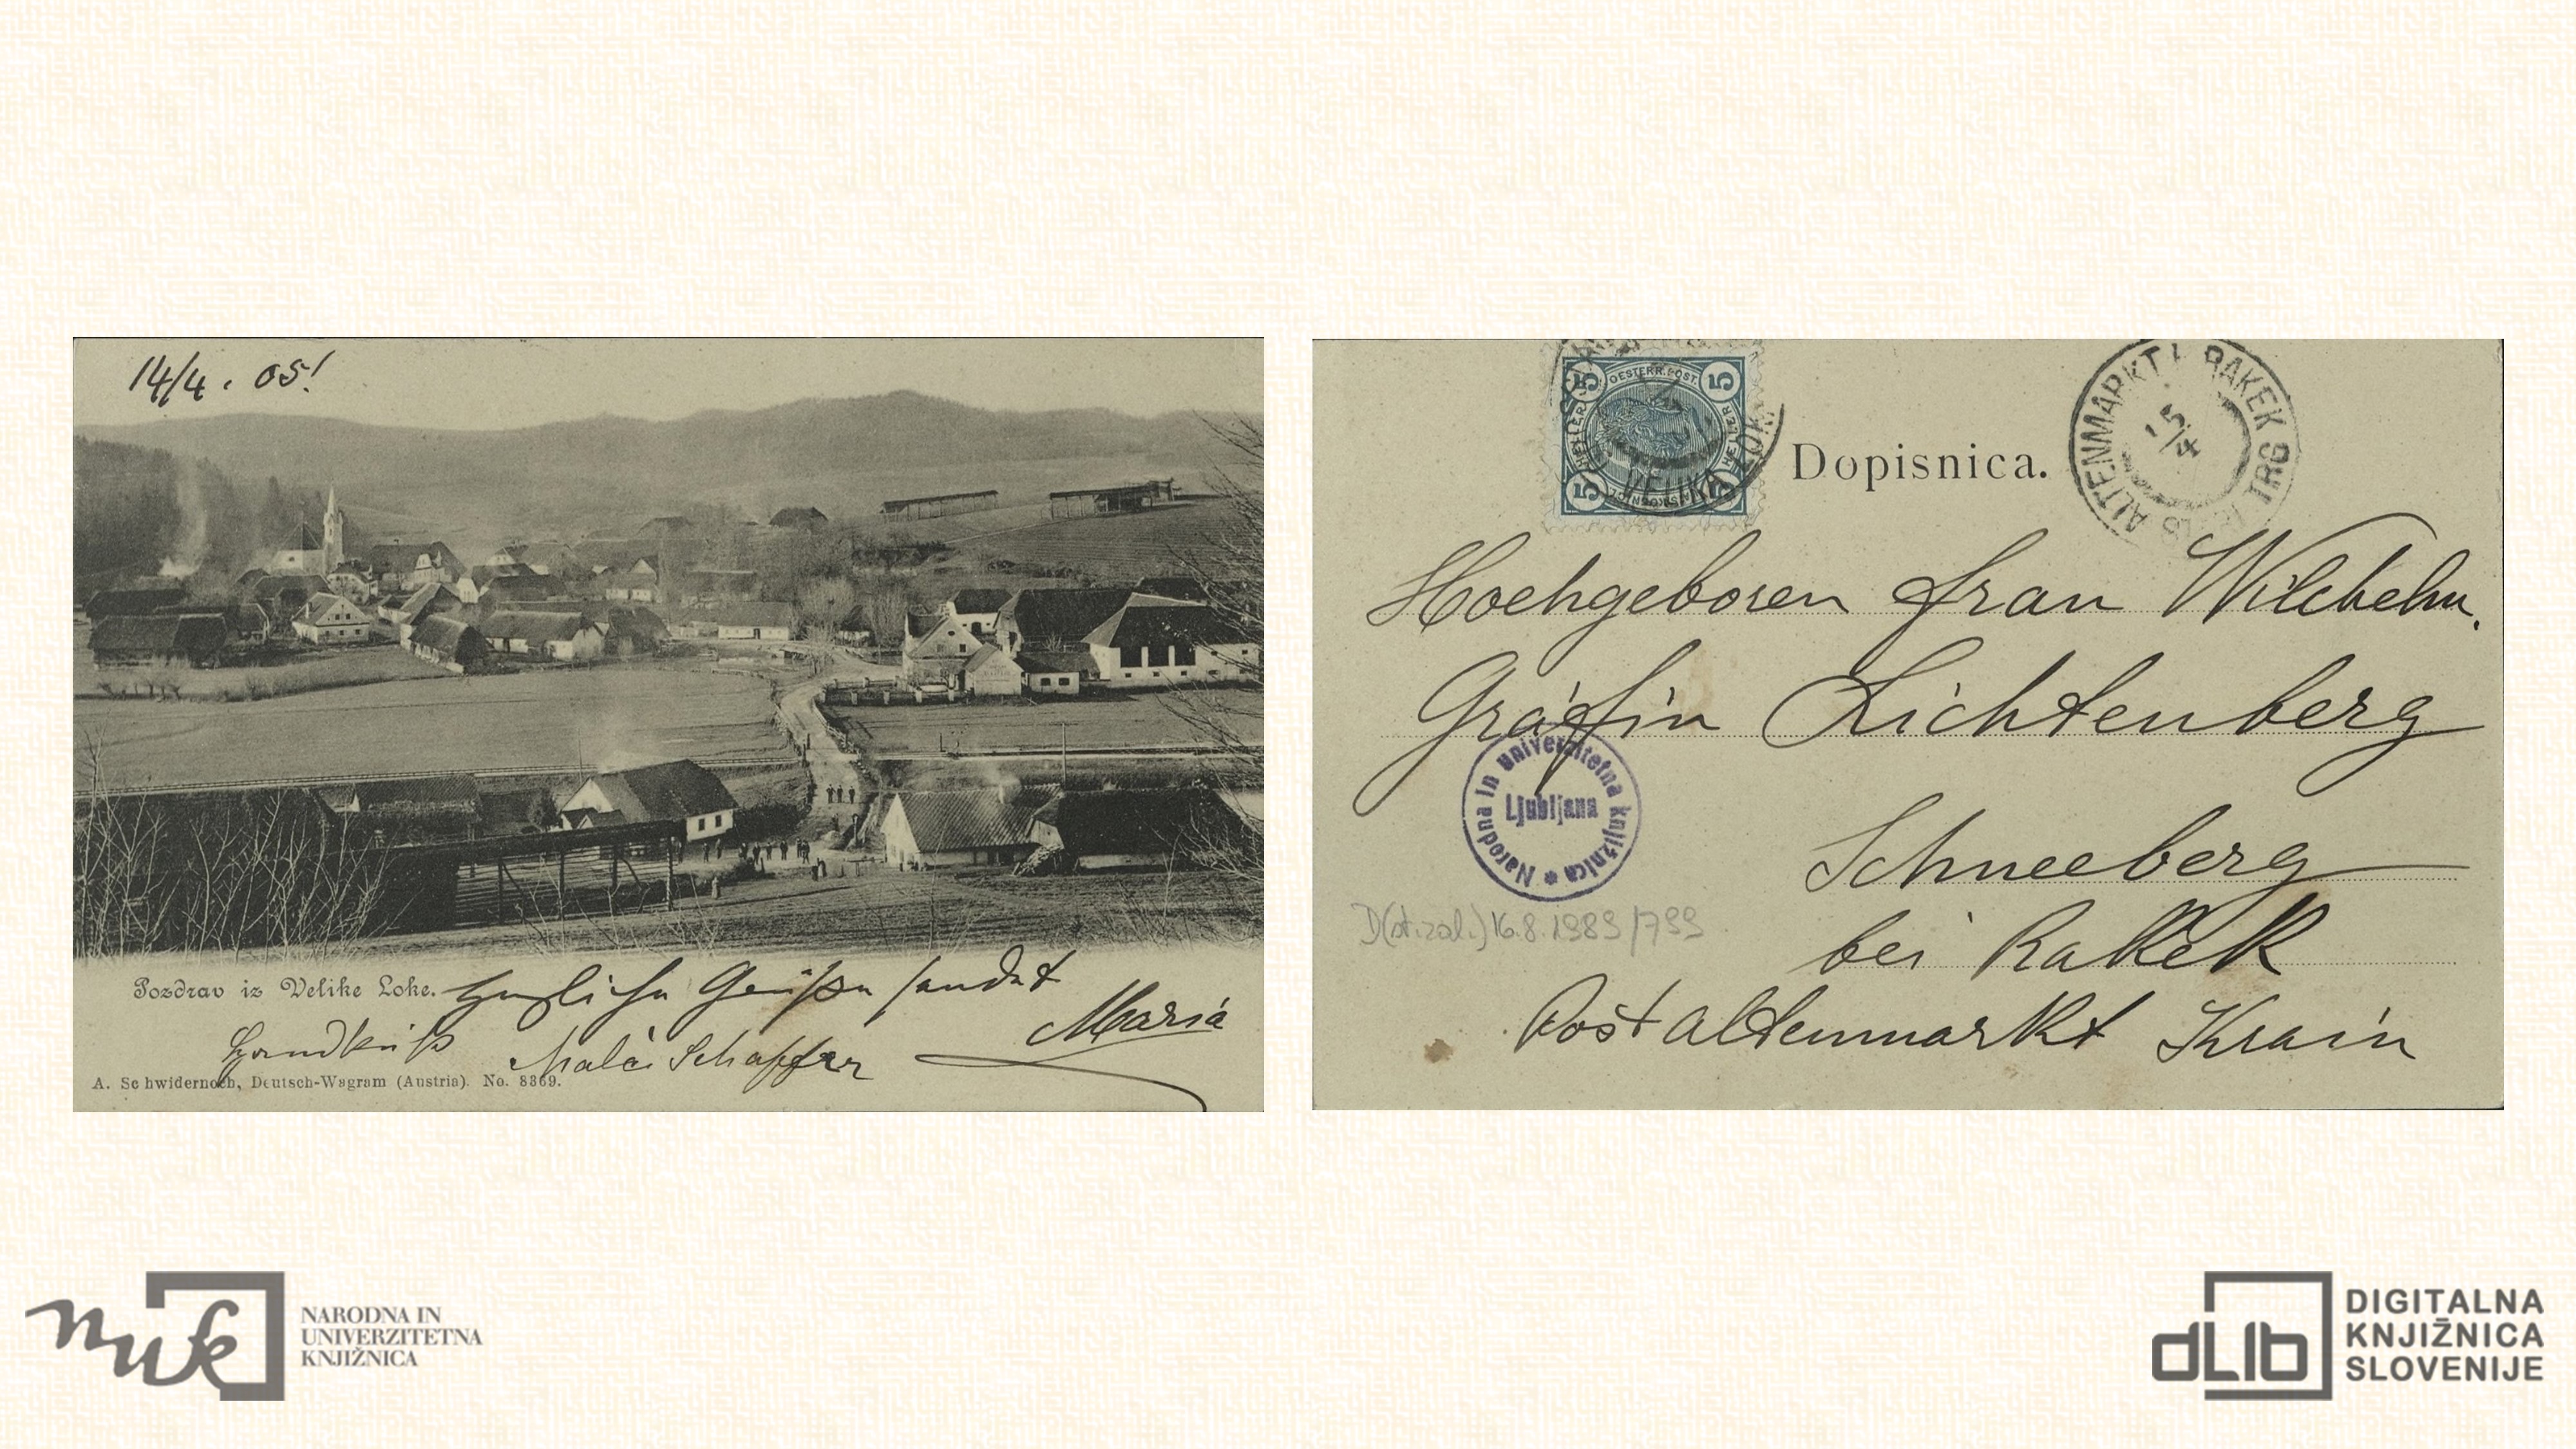 14/4. 05!
Pozdrav iz Velike Loke.
Herzliche Grüße sendet
Maria
Handkuß Malči Schaffer
A. Schwidernoch, Deutsch-Wagram (Austria). No. 8369.
5 OESTERR. POST. 5
HELLER HELLER
5 5
VELIKA LOKA
Dopisnica.
ALTENMARKT b. RAKEK
TRG
15/4
Hochgeboren Frau Wilchelm.
Gräfin Lichtenberg
Schneeberg
bei Rakek
Post Altenmarkt Krain
Narodna in univerzitetna knjižnica *
Ljubljana
D(st.zal.) 16.8.1989/799
nuk
NARODNA IN
UNIVERZITETNA
KNJIŽNICA
dLib
DIGITALNA
KNJIŽNICA
SLOVENIJE